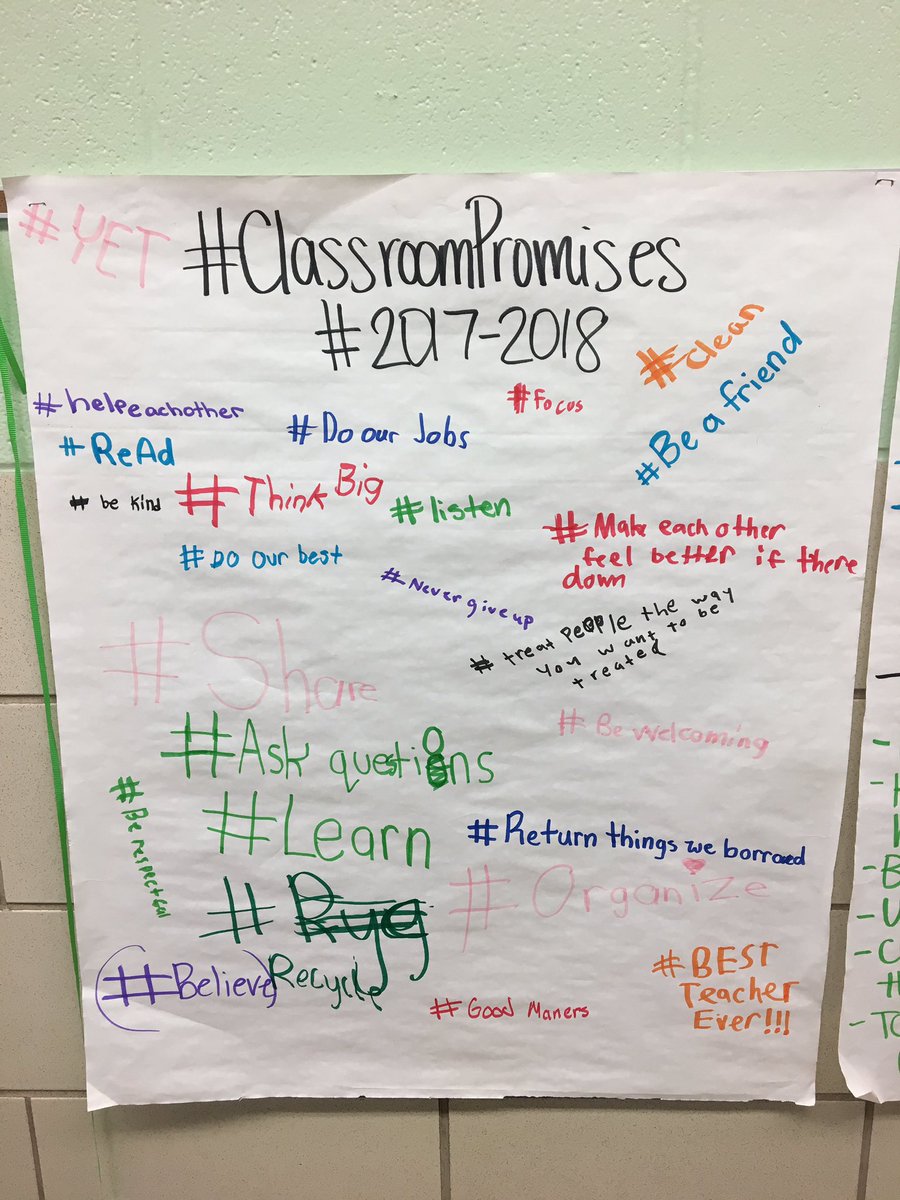 #YET #ClassroomPromises
#2017-2018
#clean
#Be a friend
#helpeachother
#Focus
#Do our Jobs
#ReAd
#be kind
#Think Big
#listen
#Make each other
feel better if there
down
#Do Our best
#Never give up
#treat PeOPle the way
you want to be
treated
#Share
#Be welcoming
#Ask questions
#Be respectful
#Learn
#Return things we borrowed
#Organize
#
Recycle
#Believe
#BEST
Teacher
Ever!!!
#Good Maners